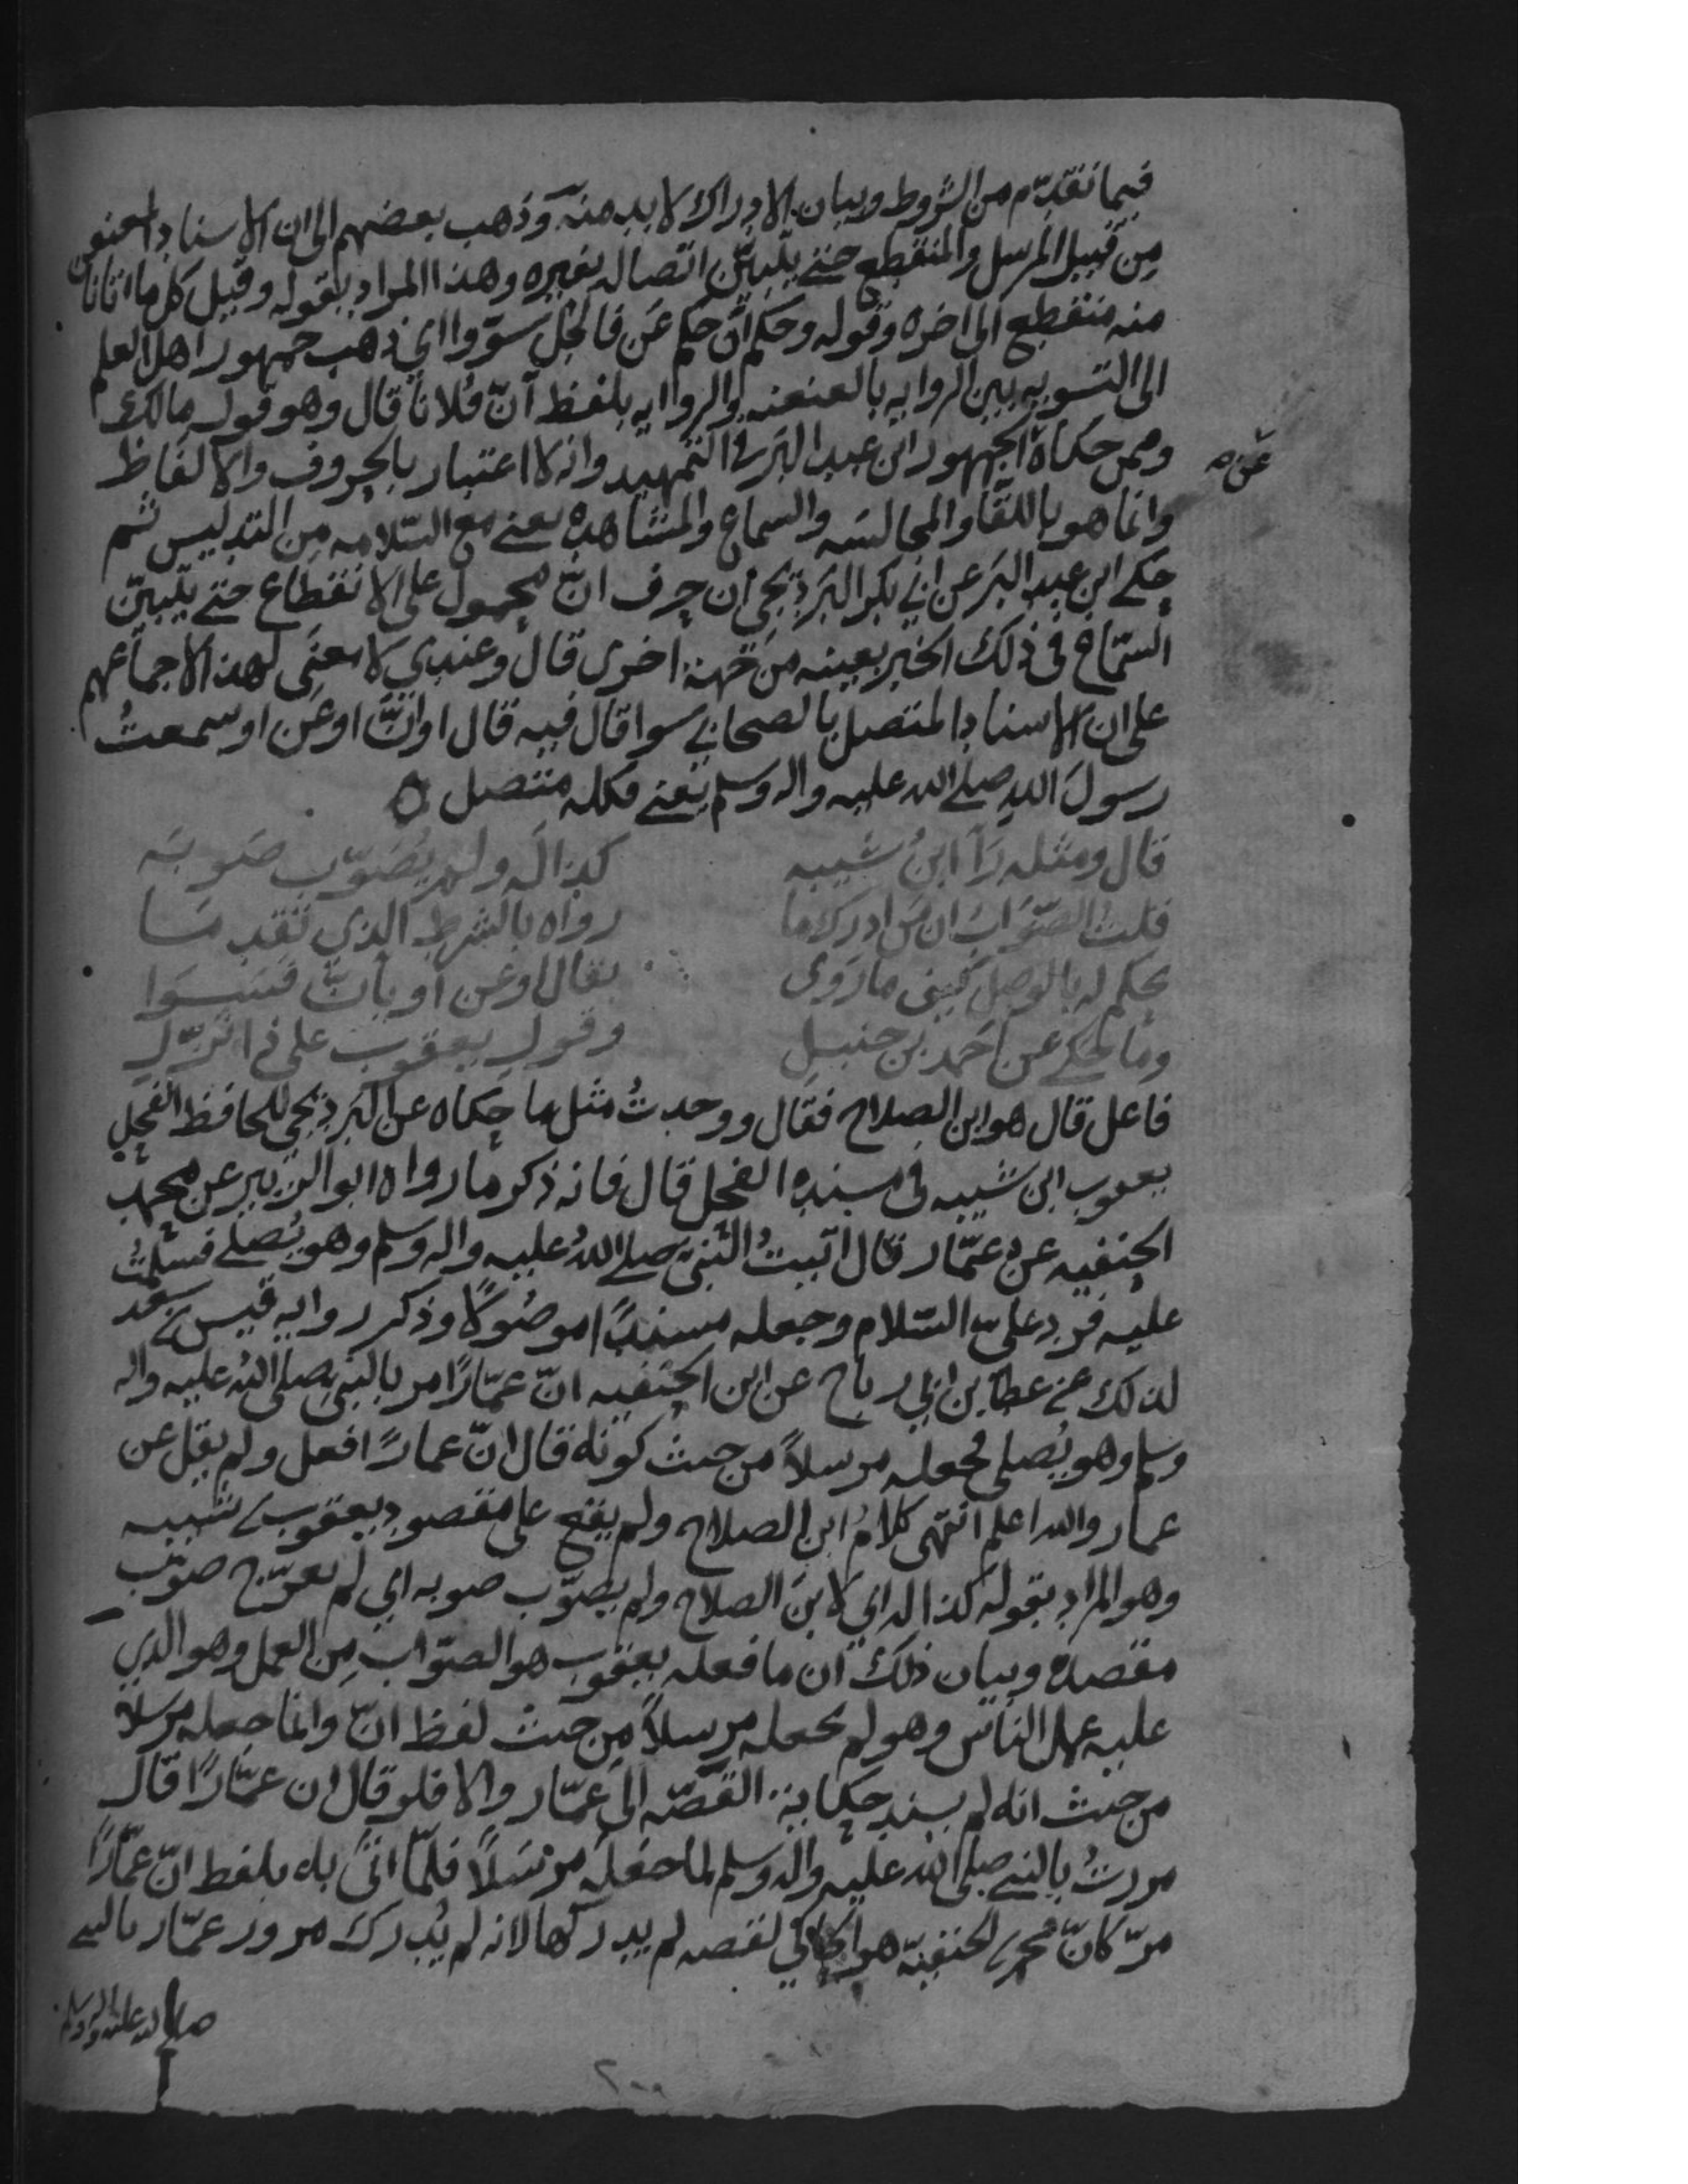 فيما تقدّم من الشروط وبيان الادراك لا بد منه وذهب بعضهم الى ان الاسناد المعنعن
من قبيل المرسل والمنقطع حتى يتبيّن اتصاله بغيره وهذا المراد بقوله وقيل كل ما اتانا
منه منقطع الى اخره وقوله وحكم انّ حكم عن فالجلّ سوّوا اي ذهب جمهور اهل العلم
الى التسويه بين الروايه بالعنعنه والروايه بلفظ انّ فلانا قال وهو قول مالك
وممن حكاه الجمهور ابن عبد البر في التمهيد وانه لا اعتبار بالحروف والالفاظ
عن صه
وانما هو باللقا والمجالسه والسماع والمشاهده يعني مع السّلامه من التدليس ثم
حكى ابن عبد البر عن ابي بكر البرديجي ان حرف انّ محمول على الانقطاع حتى يتبيّن
السّماع في ذلك الخبر بعينه من جهة اخرى قال وعندي لا معنى لهذا لاجماعهم
على ان الاسناد المتصل بالصحابي سوا قال فيه قال او انّ او عن او سمعتُ
رسول الله صلى الله عليه واله وسلم يعني فكله متصل
قال ومثله رآ ابن شيبه كذا له ولم يُصوّب صوبه
قلت الصّواب ان من ادرك ما رواه بالشرط الذي تقدما
يحكم له بالوصل كيف ما روى بقال او عن او بانّ فسوا
وما حكي عن احمد بن حنبل وقول يعقوب على ذا نزّل
فاعل قال هو ابن الصلاح فقال ووجدتُ مثل ما حكاه عن البرديجي للحافظ الفحل
يعقوب ابن شيبه في مسنده الفحل قال فانه ذكر ما رواه ابو الزبير عن محمد بن
الحنفيه عن عمّار قال اتيتُ النبي صلى اللهُ عليه واله وسلم وهو يُصلي فسلمتُ
عليه فرد عليّ السّلام وجعله مسنداً موصُولاً وذكر روايه قيس بن سعد
لذلك عن عطا بن ابي رباح عن ابن الحنفيه انّ عمّارًا مر بالنبي صلى اللهُ عليه واله
وسلم وهو يُصلي فجعله مرسلاً من حيث كونه قال انّ عمارًا فعل ولم يقل عن
عمار والله اعلم انتهى كلامُ ابن الصلاح ولم يقع على مقصود يعقوب بن شيبه
وهو المراد بقوله كذا له اي لابن الصلاح ولم يصوّب صوبه اي لم يعرّج صوب
مقصده وبيان ذلك ان ما فعله يعقوب هو الصّواب من العمل وهو الذي
عليه عمل الناس وهو لم يجعله مرسلاً من حيث لفظ انّ وانما جعله مرسلا
من حيث انه لم يسند حكاية القصّه الى عمّار والا فلو قال ان عمّارًا قال
مررتُ بالنبي صلى الله عليه واله وسلم لما جعله مرسَلاً فلمّا اتى به بلفظ انّ عمّارًا
مرّ كانّ محمد بن الحنفيّه هو الحاكي لقصه لم يدركها لانه لم يُدرك مرور عمّار بالنبي
صلى الله عليه واله وسلم